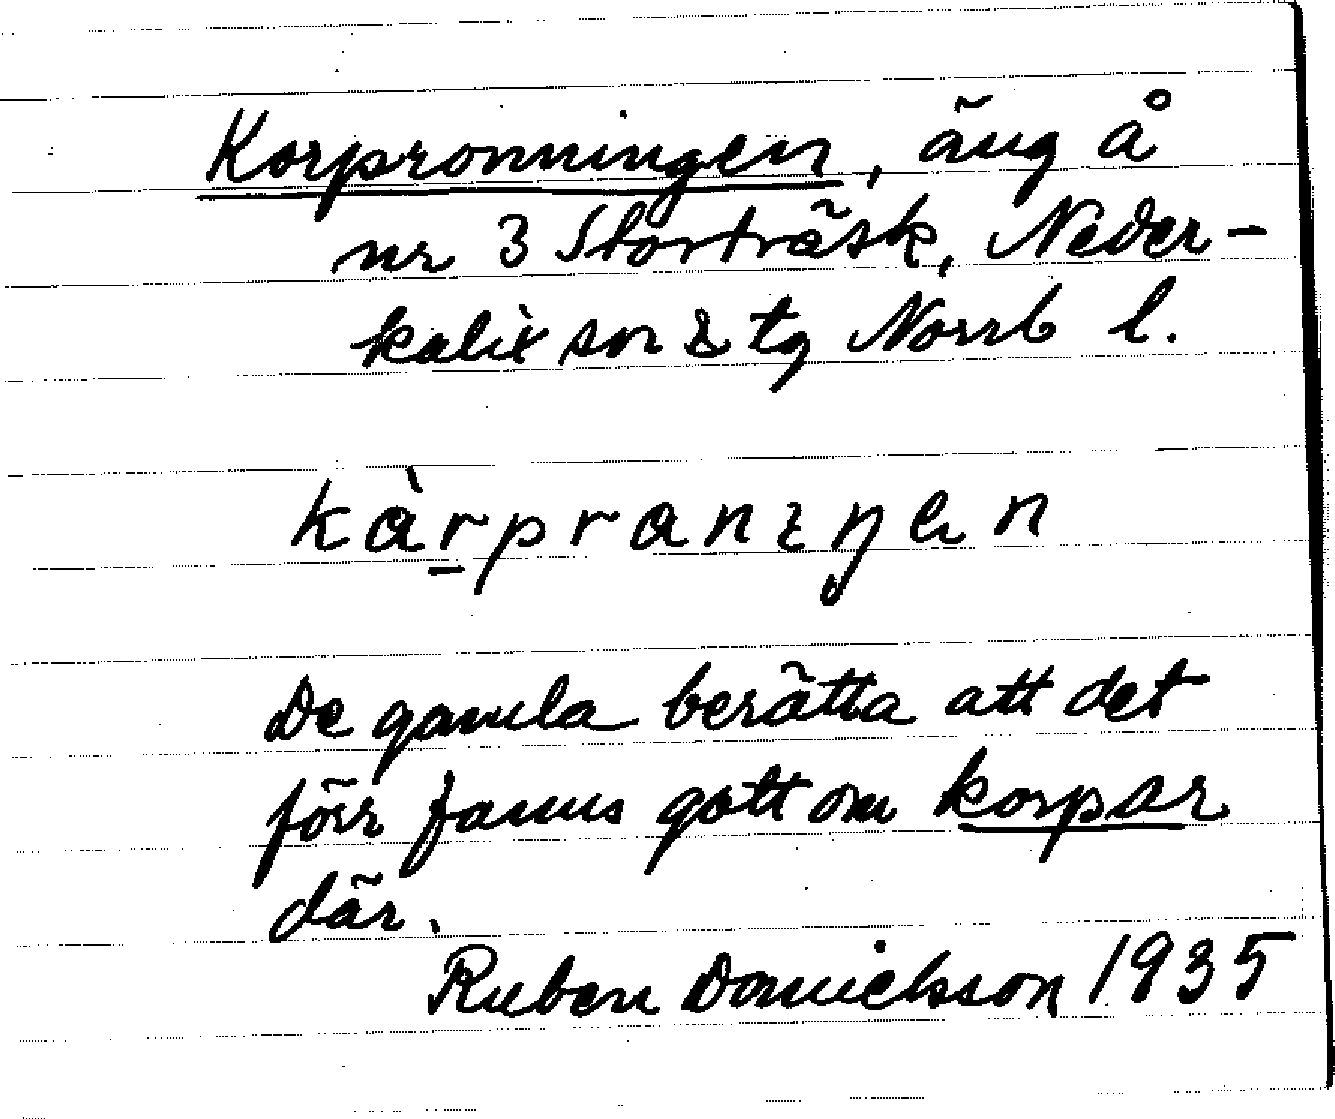 Korpronningen, äng å
nr 3 Storträsk, Neder-
kalix sn & tg Norrb l.
kàrpranɩŋen
De gamla berätta att det
förr fanns gott om korpar
där.
Ruben Danielsson 1935